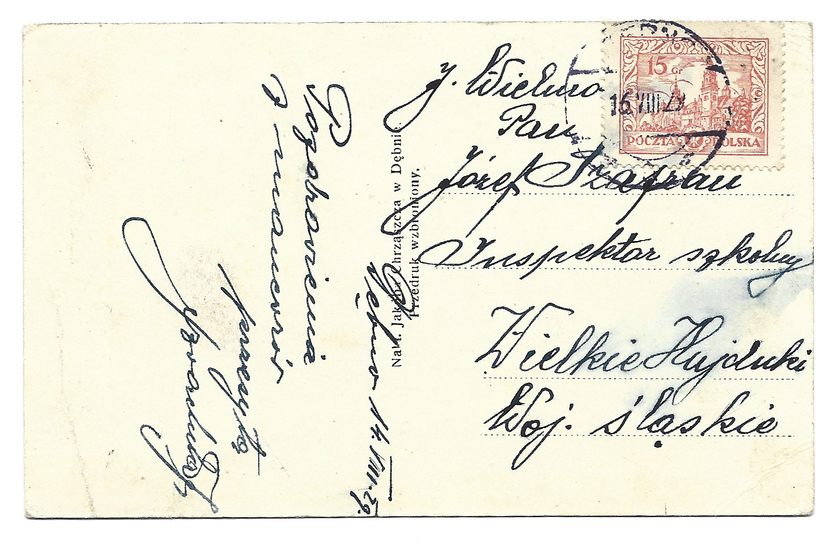 Pozdrowienia
z manewrów
przesyła
Dębno 14.VIII.29.
Nakł. Jakóba Chrząszcza w Dębnie
Przedruk wzbroniony.
15 Gr
POCZTA POLSKA
16.VIII.29
J. Wielmo
Pan
Józef Szafran
Inspektor szkolny
Wielkie Hajduki
Woj. śląskie